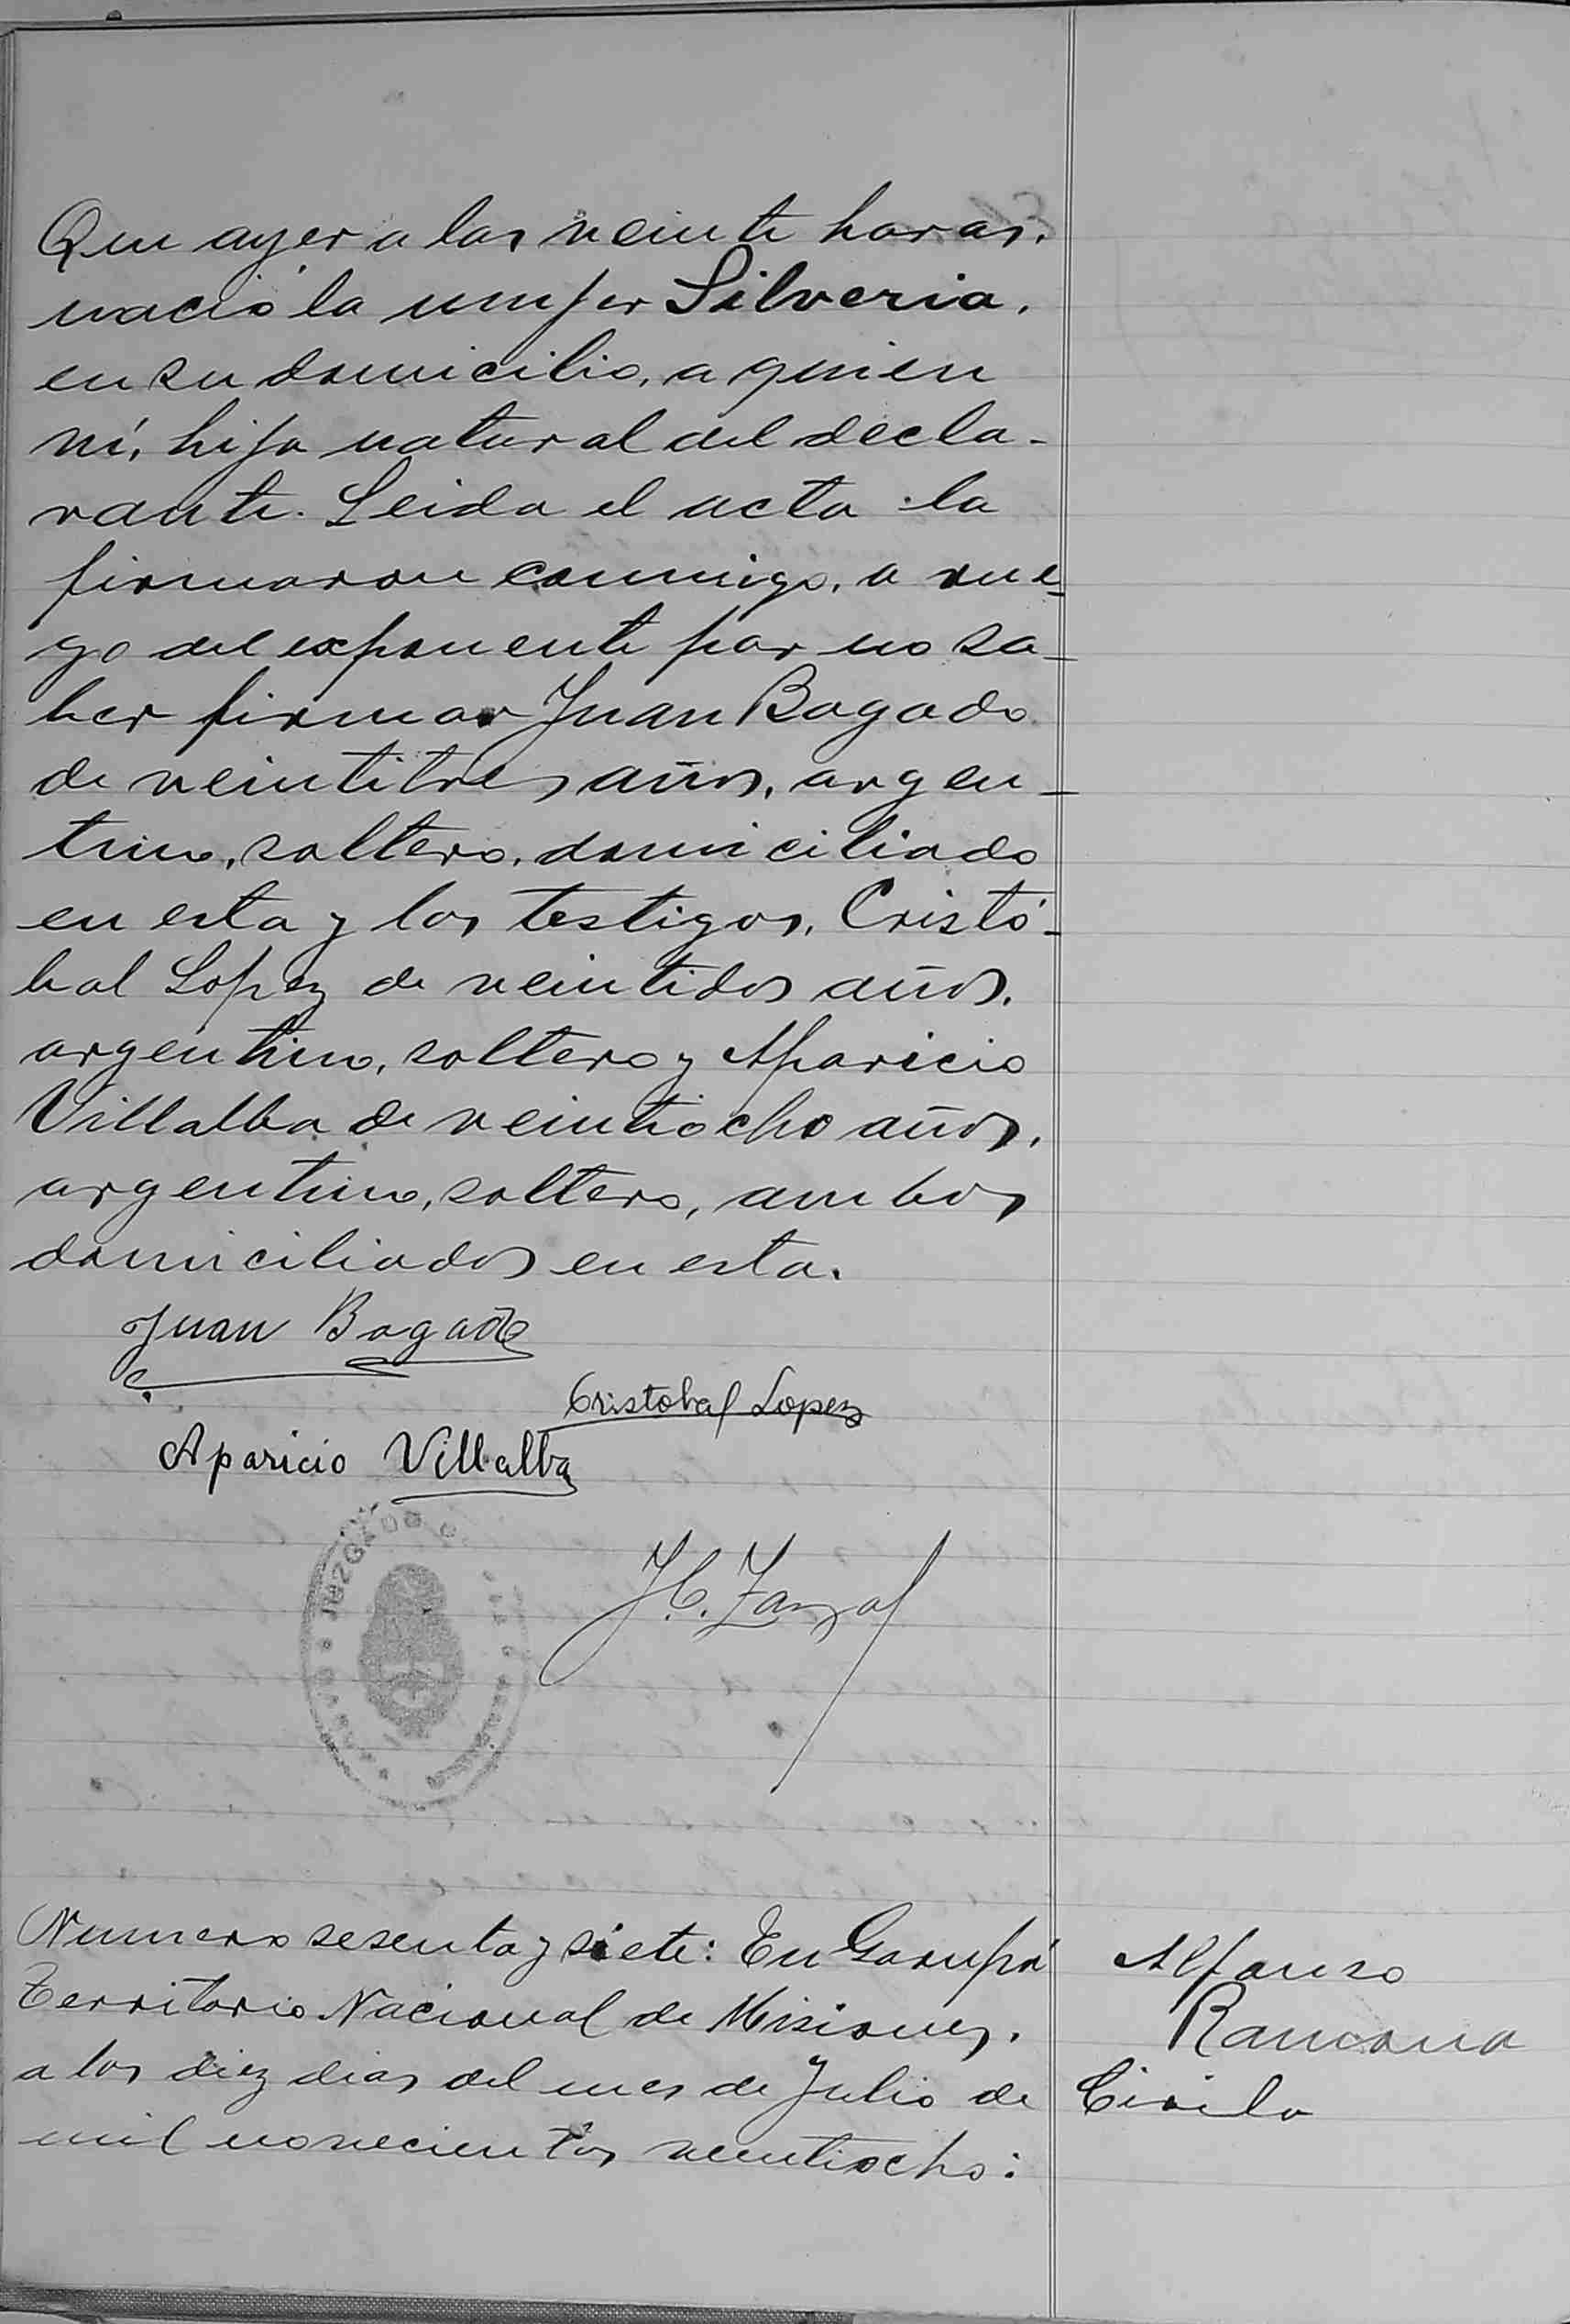 Que ayer a las veinte horas.
nació la mujer Silveria.
en su domicilio, a quien
ví, hija natural del decla-
rante. Leida el acta la
firmaron conmigo, a rue-
go del exponente por no sa-
ber firmar Juan Bogado
de veintitres años, argen-
tino, soltero, domiciliado
en esta y los testigos, Cristó-
bal Lopez de veintidos años,
argentino, soltero y Aparicio
Villalba de veintiocho años,
argentino, soltero, ambos
domiciliados en esta.
Juan Bogado
Cristobal Lopez
Aparicio Villalba
JUZGADO
J.C.
Numero sesenta y siete: En Garupá
Territorio Nacional de Misiones,
a los diez dias del mes de Julio de
mil novecientos veintiocho:
Alfonso
Ramona
Cirila